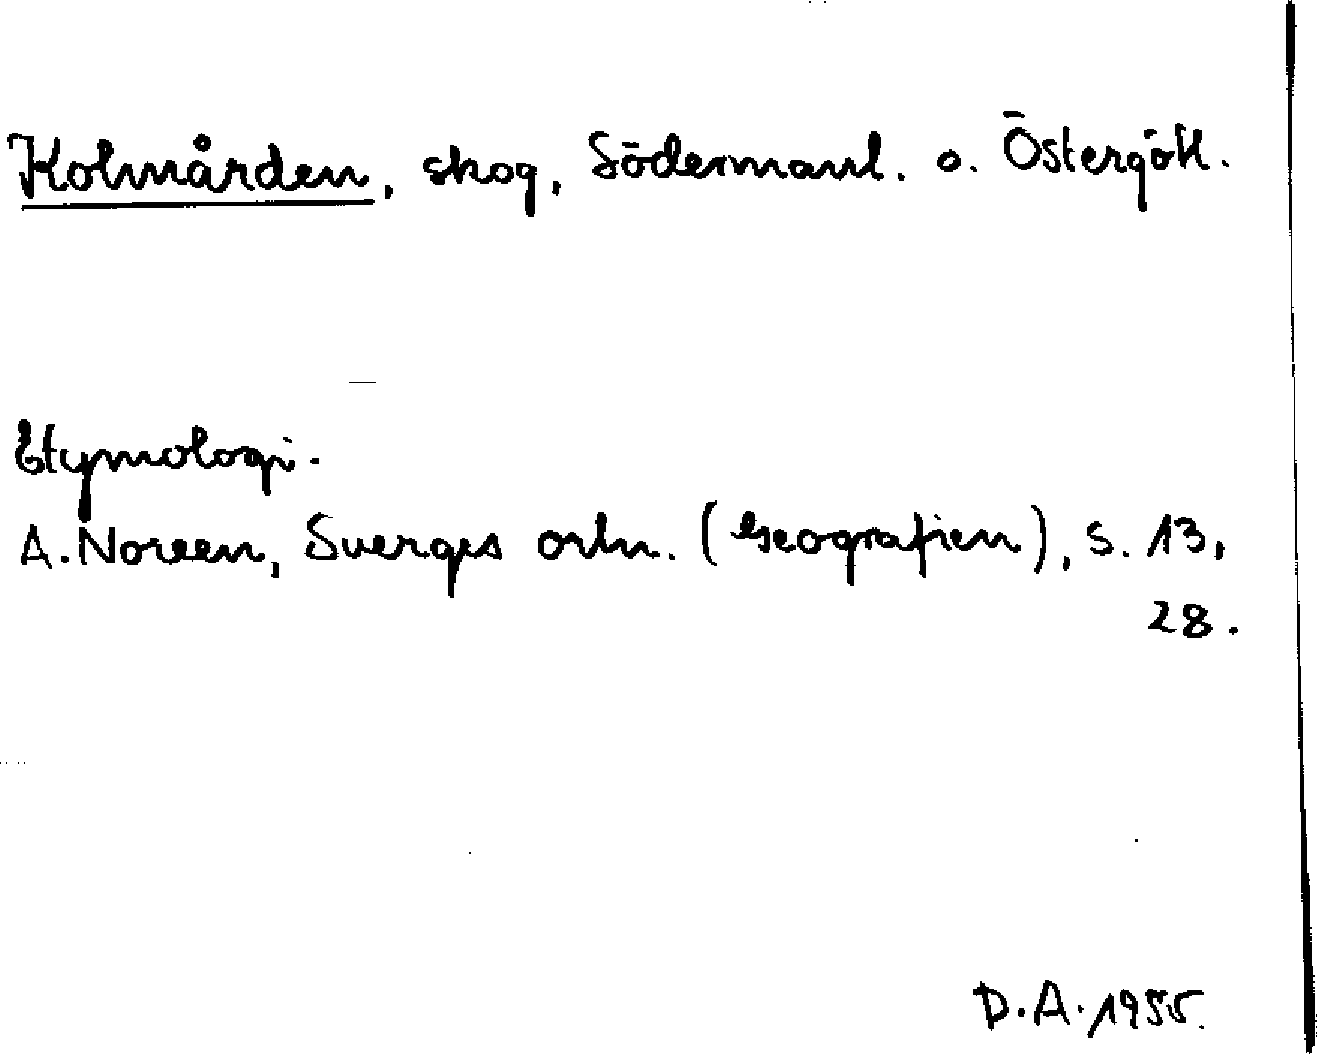 Kolmården, skog, Södermanl. o. Östergötl.
Etymologi.
A. Noreen, Sverges ortn. (Geografien), s. 13,
28.
D.A. 1955.